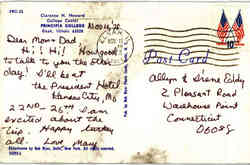 Clarence H. Howard
College Center
PRINCIPIA COLLEGE
Elsah, Illinois 62028
Dear Mom + Dad
Hi! Hi! How good
to talk to you the other
day! I'll be at
the President Hotel
Kansas City, Mo
22ND - 26TH. I am
excited about the
trip. Happy turkey
all. Love Mary
Post Card
Allyn & Irene Eddy
2 Pleasant Road
Warehouse Point
Connecticut
06088
10¢